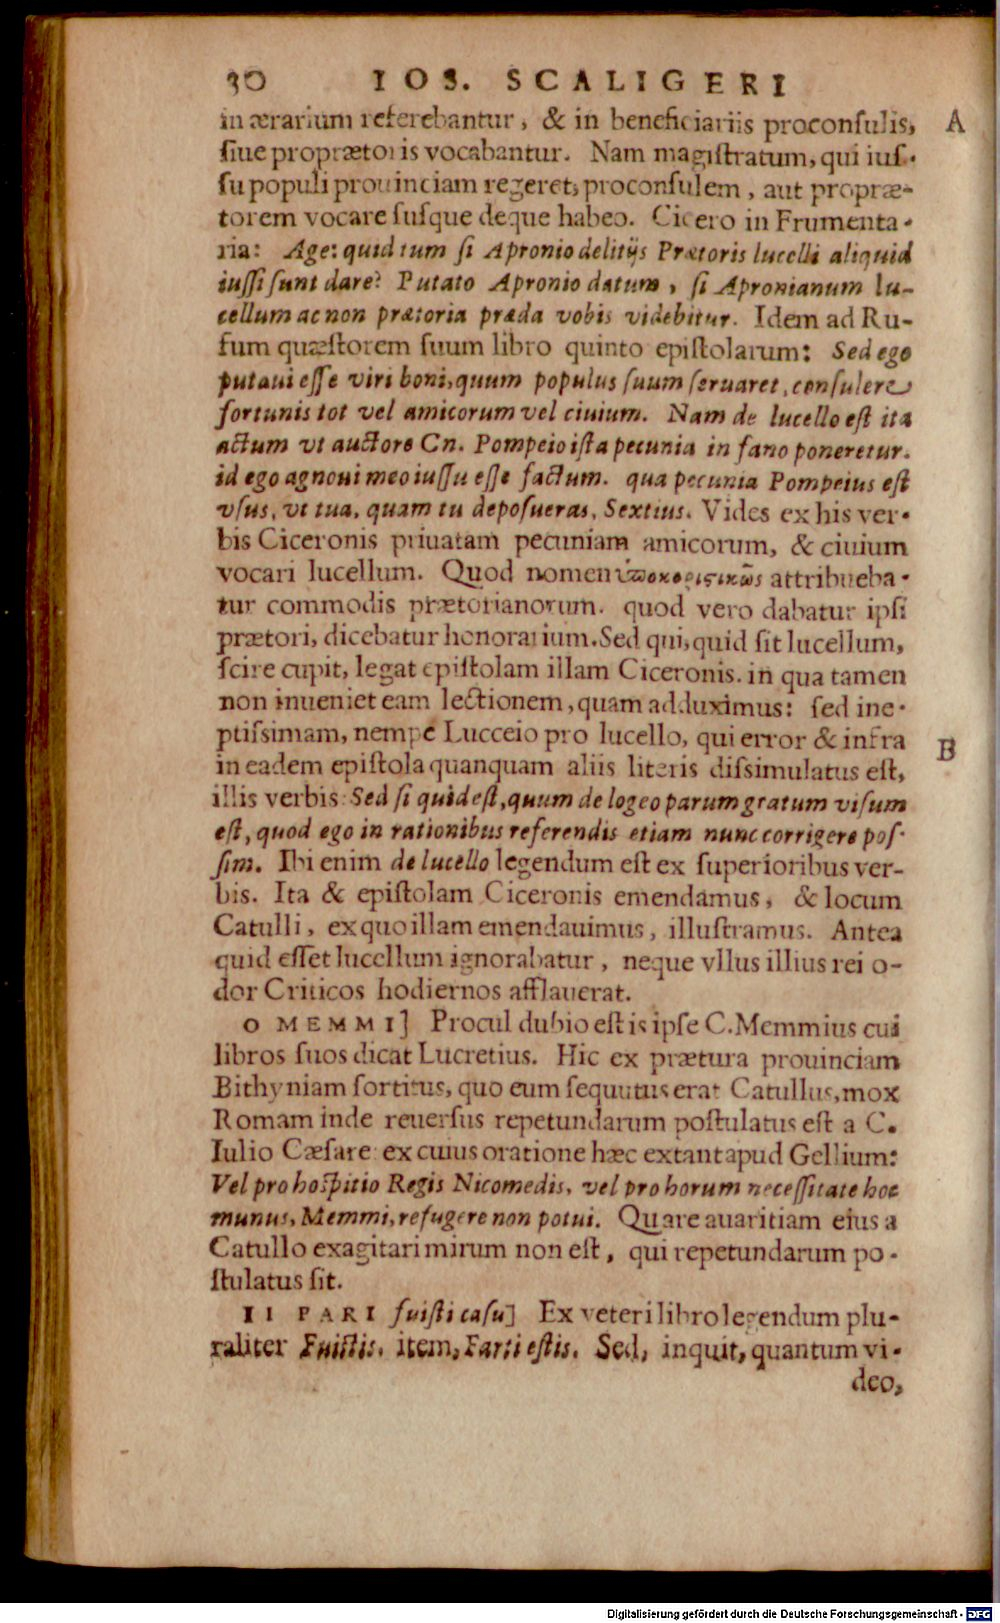 30 IOS. SCALIGERI
in ærarium referebantur, & in beneficiariis proconſulis, A
ſiue proprætoris vocabantur. Nam magiſtratum, qui iuſ-
ſu populi prouinciam regeret, proconſulem, aut propræ-
torem vocare ſuſque deque habeo. Cicero in Frumenta-
ria: Age: quid tum ſi Apronio delitijs Prætoris lucelli aliquid
iuſſi ſunt dare? Putato Apronio datum, ſi Apronianum lu-
cellum ac non prætoria præda vobis videbitur. Idem ad Ru-
fum quæſtorem ſuum libro quinto epiſtolarum: Sed ego
putaui eſſe viri boni, quum populus ſuum ſeruaret, conſulere
fortunis tot vel amicorum vel ciuium. Nam de lucello eſt ita
actum vt auctore Cn. Pompeio iſta pecunia in fano poneretur.
id ego agnoui meo iuſſu eſſe factum. qua pecunia Pompeius eſt
vſus, vt tua, quam tu depoſueras, Sextius. Vides ex his ver-
bis Ciceronis priuatam pecuniam amicorum, & ciuium
vocari lucellum. Quod nomen ὑποκοριστικῶς attribueba-
tur commodis prætorianorum. quod vero dabatur ipſi
prætori, dicebatur honorarium. Sed qui, quid ſit lucellum,
ſcire cupit, legat epiſtolam illam Ciceronis. in qua tamen
non inueniet eam lectionem, quam adduximus: ſed ine-
ptiſsimam, nempe Lucceio pro lucello, qui error & infra B
in eadem epiſtola quanquam aliis literis diſsimulatus eſt,
illis verbis: Sed ſi quid eſt, quum de logeo parum gratum viſum
eſt, quod ego in rationibus referendis etiam nunc corrigere poſ-
ſim. Ibi enim de lucello legendum eſt ex ſuperioribus ver-
bis. Ita & epiſtolam Ciceronis emendamus, & locum
Catulli, ex quo illam emendauimus, illuſtramus. Antea
quid eſſet lucellum ignorabatur, neque vllus illius rei o-
dor Criticos hodiernos afflauerat.
O MEMMI] Procul dubio eſt is ipſe C. Memmius cui
libros ſuos dicat Lucretius. Hic ex prætura prouinciam
Bithyniam ſortitus, quo eum ſequutus erat Catullus, mox
Romam inde reuerſus repetundarum poſtulatus eſt a C.
Iulio Cæſare: ex cuius oratione hæc extant apud Gellium:
Vel pro hoſpitio Regis Nicomedis, vel pro horum neceſſitate hoc
munus, Memmi, refugere non potui. Quare auaritiam eius a
Catullo exagitari mirum non eſt, qui repetundarum po-
ſtulatus ſit.
II PARI fuiſti caſu] Ex veteri libro legendum plu-
raliter Fuiſtis. item, Farti eſtis. Sed, inquit, quantum vi-
deo,
Digitalisierung gefördert durch die Deutsche Forschungsgemeinschaft - DFG